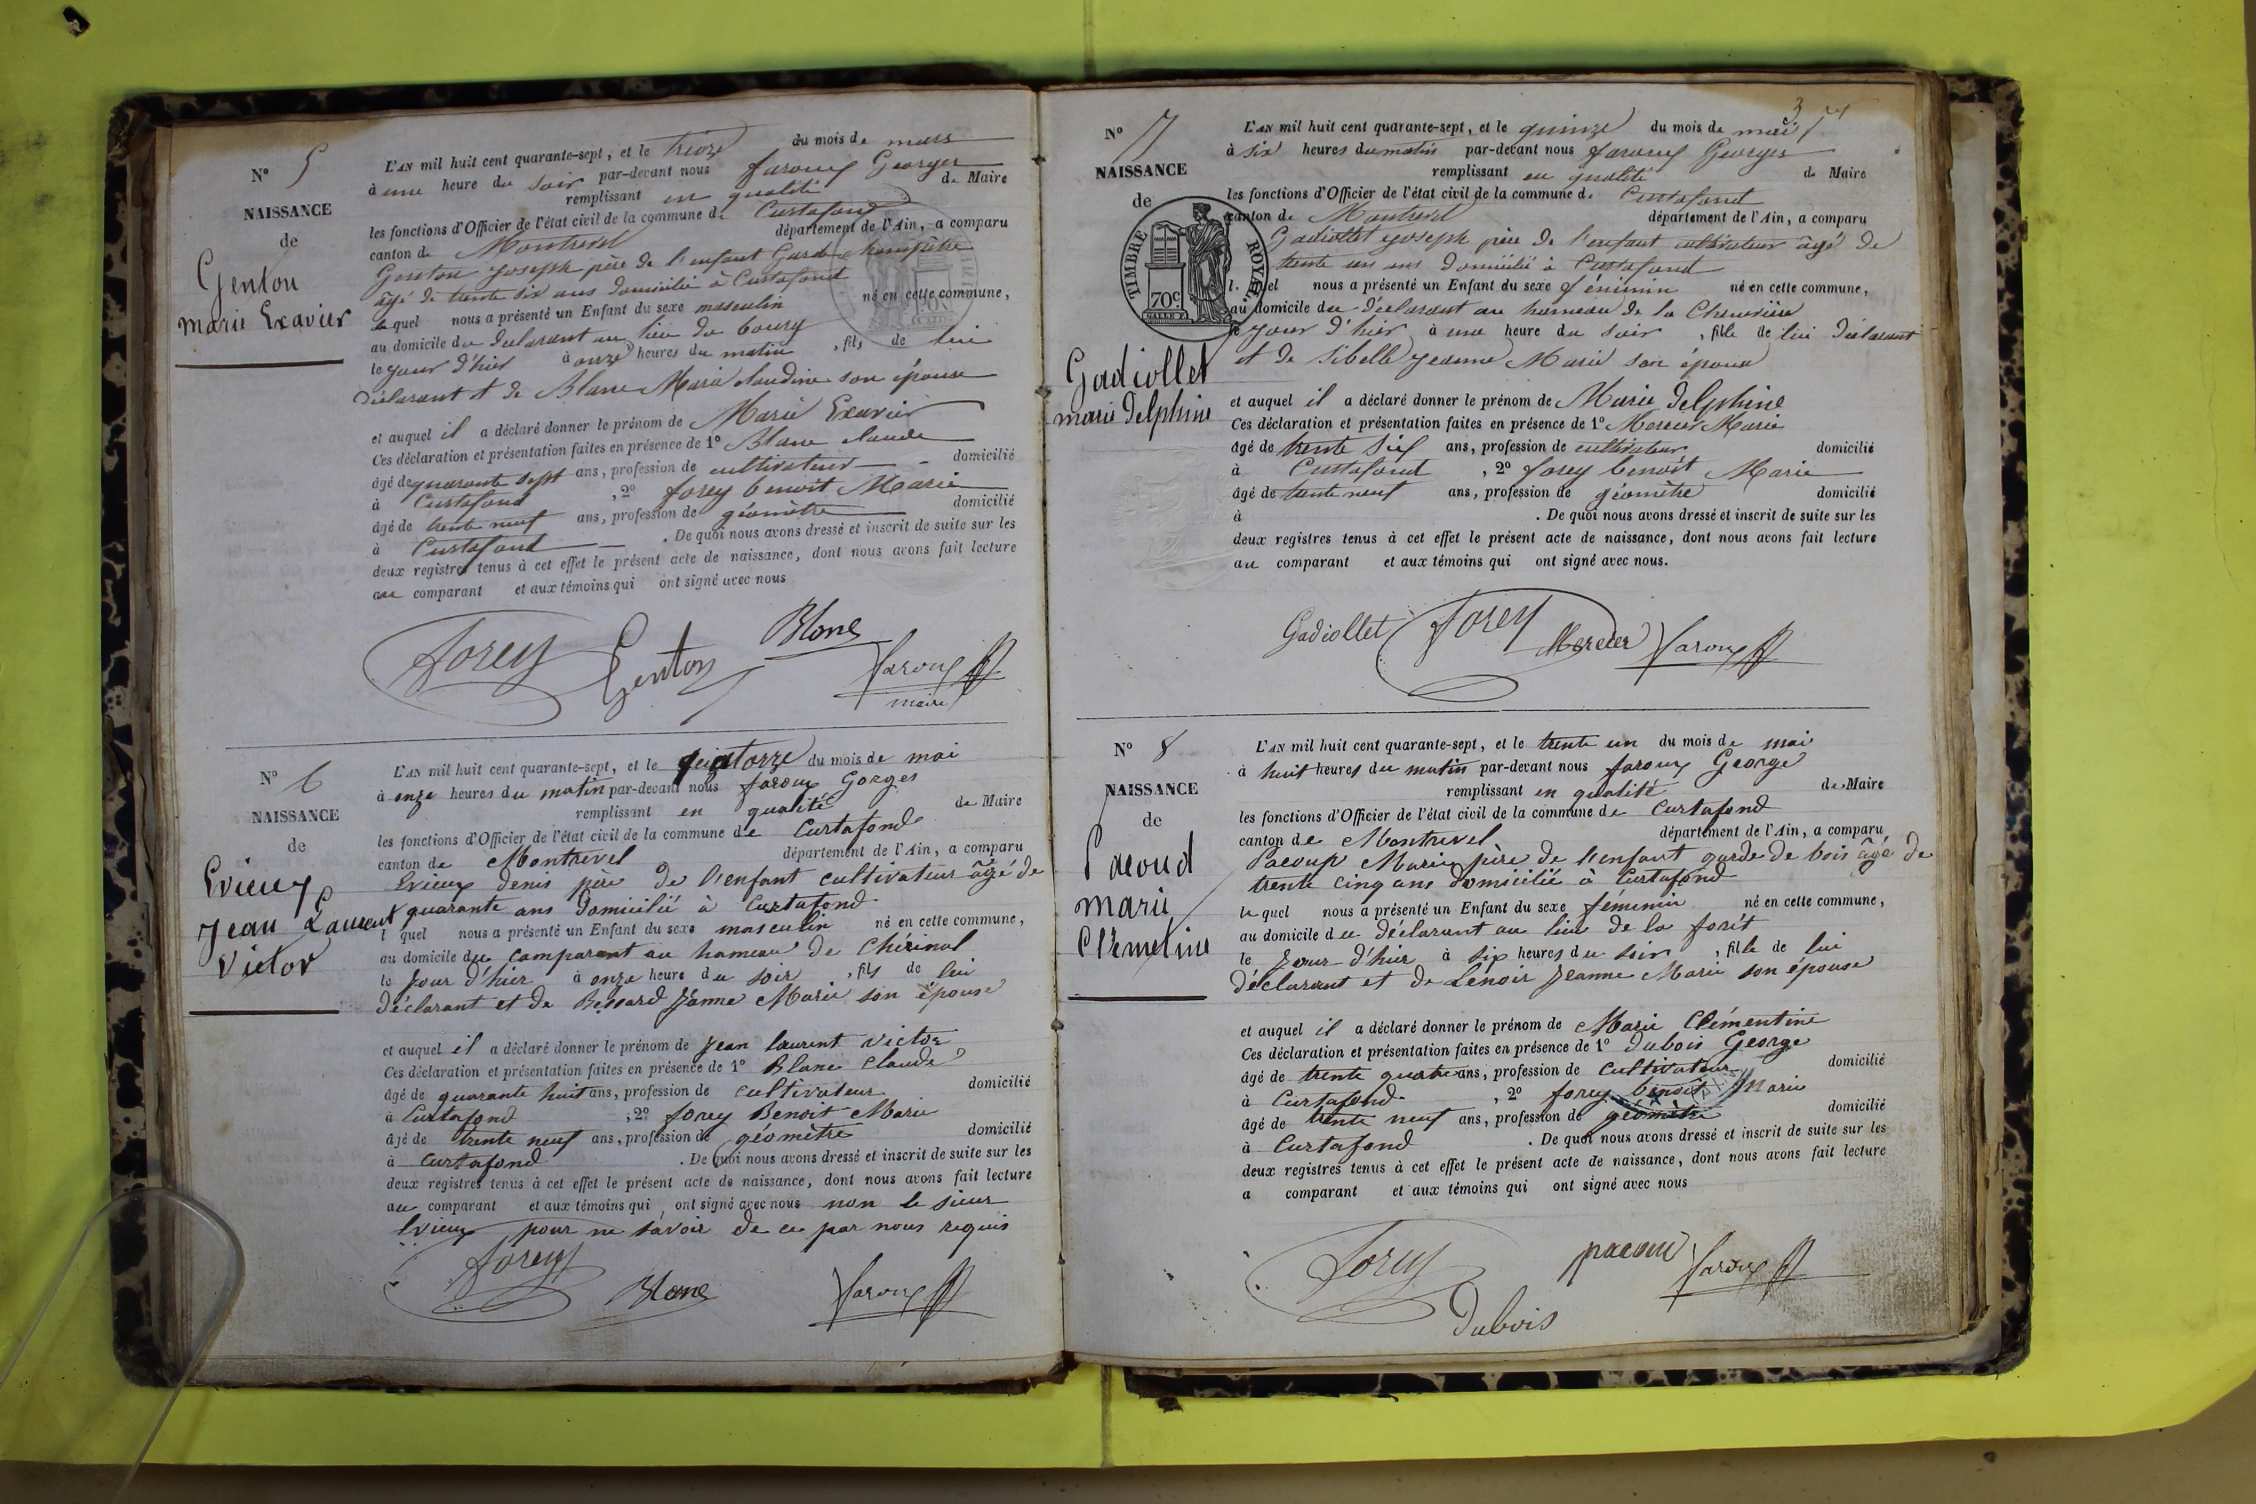 N° 5
NAISSANCE
de
Genton
marie Exavier
L'AN mil huit cent quarante-sept, et le treize du mois de mars
à une heure du soir par-devant nous faroux Georges
remplissant en qualité de Maire
les fonctions d'Officier de l'état civil de la commune de Curtafond
canton de Montrevel département de l'Ain, a comparu
Genton Joseph père de l'enfant Garde champêtre
âgé de trente six ans domicilié à Curtafond
le quel nous a présenté un Enfant du sexe masculin né en cette commune,
au domicile du déclarant au lieu du bourg
le jour d'hier à onze heures du matin, fils de lui
déclarant et de Blanc Marie claudine son épouse
et auquel il a déclaré donner le prénom de Marie Exavier
Ces déclaration et présentation faites en présence de 1° Blanc claude
âgé de quarante sept ans, profession de cultivateur domicilié
à Curtafond, 2° forey benoit Marie
âgé de trente neuf ans, profession de géomètre domicilié
à Curtafond. De quoi nous avons dressé et inscrit de suite sur les
deux registres tenus à cet effet le présent acte de naissance, dont nous avons fait lecture
au comparant et aux témoins qui ont signé avec nous
Forey Genton Blanc faroux
maire
N° 6
NAISSANCE
de
Evieux
Jean Laurent
Victor
L'AN mil huit cent quarante-sept, et le quatorze du mois de mai
à onze heures du matin par-devant nous faroux Gorges
remplissant en qualité de Maire
les fonctions d'Officier de l'état civil de la commune de Curtafond
canton de Montrevel département de l'Ain, a comparu
Evieux denis père de l'enfant cultivateur âgé de
quarante ans domicilié à Curtafond
l quel nous a présenté un Enfant du sexe masculin né en cette commune,
au domicile du comparant au hameau de Chirinal
le jour d'hier à onze heure du soir, fils de lui
déclarant et de Bessard Jeanne Marie son épouse
et auquel il a déclaré donner le prénom de Jean laurent victor
Ces déclaration et présentation faites en présence de 1° Blanc Claude
âgé de quarante huit ans, profession de cultivateur domicilié
à Curtafond, 2° forey Benoit Marie
âgé de trente neuf ans, profession de géomètre domicilié
à Curtafond. De quoi nous avons dressé et inscrit de suite sur les
deux registres tenus à cet effet le présent acte de naissance, dont nous avons fait lecture
au comparant et aux témoins qui ont signé avec nous non le sieur
Evieux pour ne savoir de ce par nous requis
Forey Blanc faroux
3
N° 7
NAISSANCE
de
TIMBRE ROYAL
70c
Gadiollet
marie Delphine
L'AN mil huit cent quarante-sept, et le quinze du mois de mai
à six heures du matin par-devant nous faroux Georges
remplissant en qualité de Maire
les fonctions d'Officier de l'état civil de la commune de Curtafond
canton de Montrevel département de l'Ain, a comparu
Gadiollet Joseph père de l'enfant cultivateur âgé de
trente un ans domicilié à Curtafond
l. quel nous a présenté un Enfant du sexe féminin né en cette commune,
au domicile du déclarant au hameau de la Chevrière
le jour d'hier à une heure du soir, fille de lui déclarant
et de Sibelle Jeanne Marie son épouse
et auquel il a déclaré donner le prénom de Marie Delphine
Ces déclaration et présentation faites en présence de 1° Mercier Marie
âgé de trente six ans, profession de cultivateur domicilié
à Curtafond, 2° forey benoit Marie
âgé de trente neuf ans, profession de géomètre domicilié
à . De quoi nous avons dressé et inscrit de suite sur les
deux registres tenus à cet effet le présent acte de naissance, dont nous avons fait lecture
au comparant et aux témoins qui ont signé avec nous.
Gadiollet Forey Mercier faroux
N° 8
NAISSANCE
de
Pacoud
marie
Clémetine
L'AN mil huit cent quarante-sept, et le trente un du mois de mai
à huit heures du matin par-devant nous faroux George
remplissant en qualité de Maire
les fonctions d'Officier de l'état civil de la commune de Curtafond
canton de Montrevel département de l'Ain, a comparu
Pacoup Marie père de l'enfant garde de bois âgé de
trente cinq ans domicilié à Curtafond
le quel nous a présenté un Enfant du sexe féminin né en cette commune,
au domicile du déclarant au lieu de la forêt
le jour d'hier à six heures du soir, fille de lui
déclarant et de Lenoir Jeanne Marie son épouse
et auquel il a déclaré donner le prénom de Marie Clémentine
Ces déclaration et présentation faites en présence de 1° dubois George
âgé de trente quatre ans, profession de cultivateur domicilié
à Curtafond, 2° forey benoit Marie
âgé de trente neuf ans, profession de géomètre domicilié
à Curtafond. De quoi nous avons dressé et inscrit de suite sur les
deux registres tenus à cet effet le présent acte de naissance, dont nous avons fait lecture
a comparant et aux témoins qui ont signé avec nous
Forey pacoud faroux
Dubois